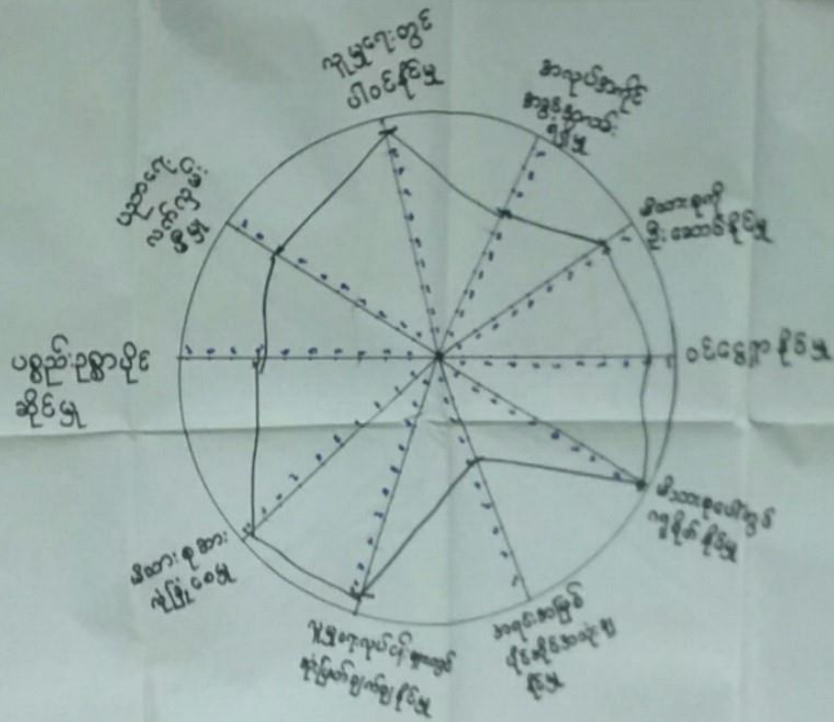 လူမှုရေးတွင်
ပါဝင်နိုင်မှု
အလုပ်အကိုင်
အခွင့်အလမ်း
ရရှိမှု
မိသားစုကို
ဦးဆောင်နိုင်မှု
ဝင်ငွေရှာနိုင်မှု
မိသားစုပေါ်တွင်
ဂရုစိုက်နိုင်မှု
အရင်းအမြစ်
ပိုင်ဆိုင်အသုံးချ
နိုင်မှု
လူမှုရေးလုပ်ငန်းများတွင်
ဆုံးဖြတ်ချက်ချနိုင်မှု
မိသားစုအား
လုံခြုံစေမှု
ပစ္စည်းဥစ္စာပိုင်
ဆိုင်မှု
ပညာရေး
လက်လှမ်း
မှီမှု